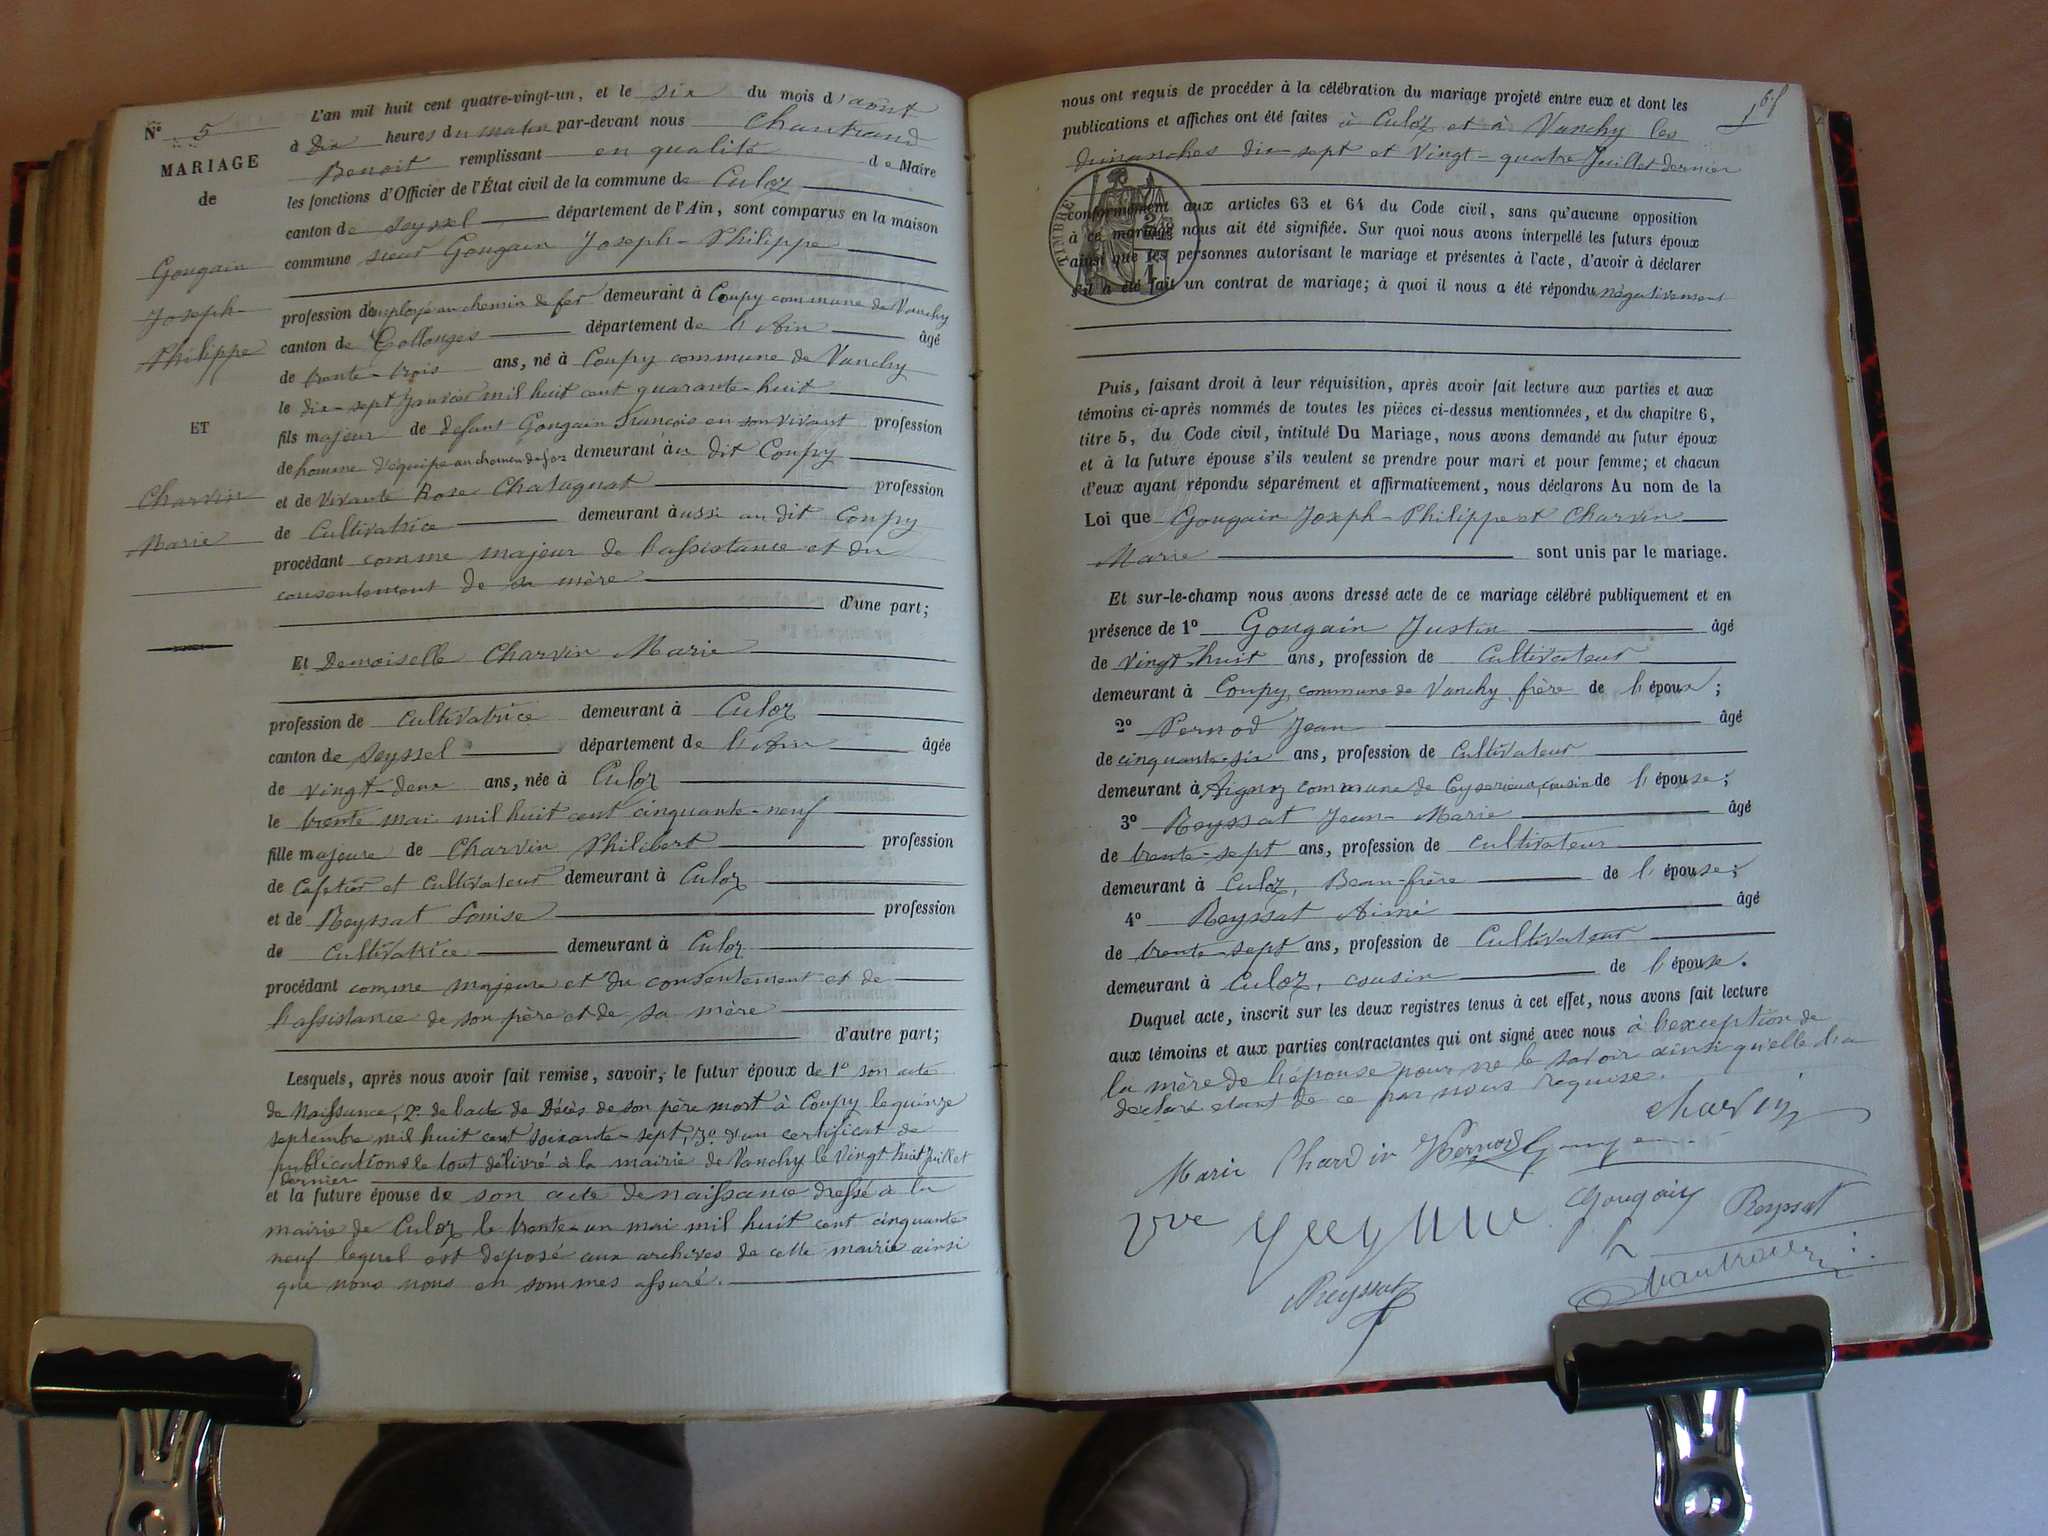 N° 5
MARIAGE
de
Gougain
Joseph-
Philippe
ET
Charvin
Marie
L'an mil huit cent quatre-vingt-un, et le six du mois d'août
à dix heures du matin par-devant nous Chautrand
Benoit remplissant en qualité de Maire
les fonctions d'Officier de l'État civil de la commune de Culoz
canton de Seyssel département de l'Ain, sont comparus en la maison
commune sieur Gougain Joseph-Philippe
profession d'employé au chemin de fer demeurant à Coupy commune de Vanchy
canton de Collonges département de l'Ain âgé
de trente-trois ans, né à Coupy commune de Vanchy
le dix-sept Janvier mil huit cent quarante-huit
fils majeur de defunt Gougain François en son vivant profession
de homme d'équipe au chemin de fer demeurant au dit Coupy
et de vivante Rose Chatagnat profession
de Cultivatrice demeurant aussi au dit Coupy
procédant comme majeur de l'assistance et du
consentement de sa mère
d'une part;
Et Demoiselle Charvin Marie
profession de cultivatrice demeurant à Culoz
canton de Seyssel département de l'Ain âgée
de vingt-deux ans, née à Culoz
le trente mai mil huit cent cinquante-neuf
fille majeure de Charvin Philibert profession
de Cafetier et Cultivateur demeurant à Culoz
et de Reyssat Louise profession
de Cultivatrice demeurant à Culoz
procédant comme majeure et du consentement et de
l'assistance de son père et de sa mère
d'autre part;
Lesquels, après nous avoir fait remise, savoir; le futur époux de 1° son acte
de Naissance, 2° de l'acte de Décès de son père mort à Coupy le quinze
septembre mil huit cent soixante-sept, 3° d'un certificat de
publications le tout délivré à la mairie de Vanchy le vingt huit Juillet
dernier
et la future épouse de son acte de naissance dressé à la
mairie de Culoz le trente-un mai mil huit cent cinquante
neuf lequel est déposé aux archives de cette mairie ainsi
que nous nous en sommes assuré.
nous ont requis de procéder à la célébration du mariage projeté entre eux et dont les
publications et affiches ont été faites à Culoz et à Vanchy les
dimanches dix-sept et vingt-quatre Juillet dernier
TIMBRE
conformément aux articles 63 et 64 du Code civil, sans qu'aucune opposition
à ce mariage nous ait été signifiée. Sur quoi nous avons interpellé les futurs époux
ainsi que les personnes autorisant le mariage et présentes à l'acte, d'avoir à déclarer
s'il a été fait un contrat de mariage; à quoi il nous a été répondu négativement
Puis, faisant droit à leur réquisition, après avoir fait lecture aux parties et aux
témoins ci-après nommés de toutes les pièces ci-dessus mentionnées, et du chapitre 6,
titre 5, du Code civil, intitulé Du Mariage, nous avons demandé au futur époux
et à la future épouse s'ils veulent se prendre pour mari et pour femme; et chacun
d'eux ayant répondu séparément et affirmativement, nous déclarons Au nom de la
Loi que Gougain Joseph-Philippe et Charvin
Marie sont unis par le mariage.
Et sur-le-champ nous avons dressé acte de ce mariage célébré publiquement et en
présence de 1° Gougain Justin âgé
de vingt-huit ans, profession de Cultivateur
demeurant à Coupy, commune de Vanchy frère de l'époux;
2° Pernod Jean âgé
de cinquante-six ans, profession de Cultivateur
demeurant à commune de Ceyzerieux, cousin de l'épouse;
3° Reyssat Jean-Marie âgé
de trente-sept ans, profession de cultivateur
demeurant à Culoz, Beau-frère de l'épouse;
4° Reyssat Aimé âgé
de trente-sept ans, profession de Cultivateur
demeurant à Culoz, cousin de l'épouse.
Duquel acte, inscrit sur les deux registres tenus à cet effet, nous avons fait lecture
aux témoins et aux parties contractantes qui ont signé avec nous à l'exception de
la mère de l'épouse pour ne le savoir ainsi qu'elle l'a
déclaré étant de ce par nous requise.
Charvin
Marie Charvin Pernod
Vve Gougain Reyssat
Reyssat Chautrand